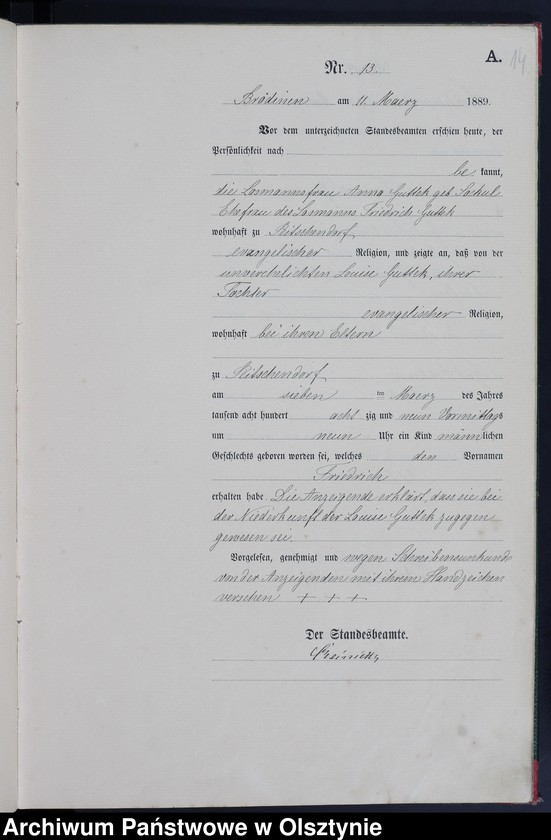 A.
14
Nr. 13.
Brödinen am 11. Maerz 1889.
Vor dem unterzeichneten Standesbeamten erschien heute, der
Persönlichkeit nach
be kannt,
die Losmannsfrau Anna Guttek geb.
Ehefrau des Losmanns Friedrich Guttek
wohnhaft zu
evangelischer Religion, und zeigte an, daß von der
unverehelichten Louise Guttek, ihrer
Tochter
evangelischer Religion,
wohnhaft bei ihren Eltern
zu
am sieben ten Maerz des Jahres
tausend acht hundert acht zig und neun Vormittags
um neun Uhr ein Kind männlichen
Geschlechts geboren worden sei, welches den Vornamen
Friedrich
erhalten habe. Die Anzeigende erklärt, dass sie bei
der Niederkunft der Louise Guttek zugegen
gewesen sei.
Vorgelesen, genehmigt und wegen Schreibensunkunde
von der Anzeigenden mit ihrem Handzeichen
versehen + + +
Der Standesbeamte.
Archiwum Państwowe w Olsztynie